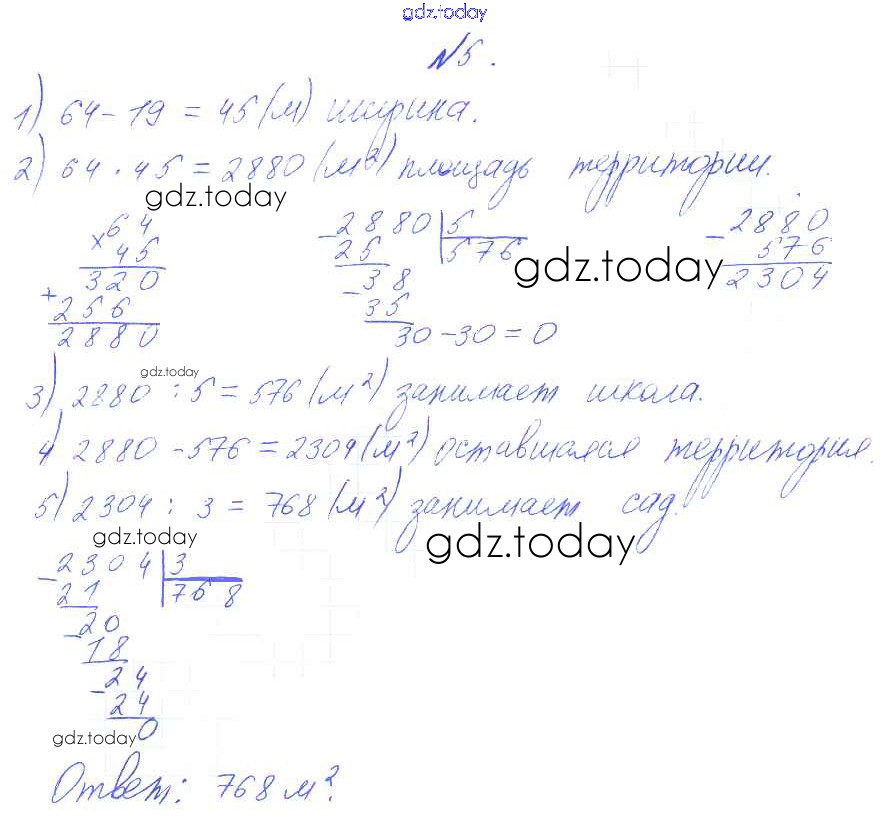 gdz.today
№5.
1) 64 - 19 = 45 (м) ширина.
2) 64 · 45 = 2880 (м²) площадь территории.
gdz.today
× 64
45
320
+ 256
2880
- 2880 | 5
25 | 576
38
- 35
30 - 30 = 0
gdz.today
- 2880
576
2304
gdz.today
3) 2880 : 5 = 576 (м²) занимает школа.
4) 2880 - 576 = 2304 (м²) оставшаяся территория.
5) 2304 : 3 = 768 (м²) занимает сад.
gdz.today
gdz.today
- 2304 | 3
21 | 768
20
- 18
24
- 24
0
gdz.today
Ответ: 768 м².